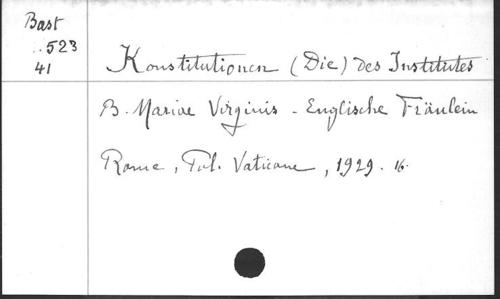 Bast
..523
41
Konstitutionen (Die) des Institutes
B. Mariae Virginis - Englische Fräulein
Rome, Pol. Vaticane, 1929. 16.